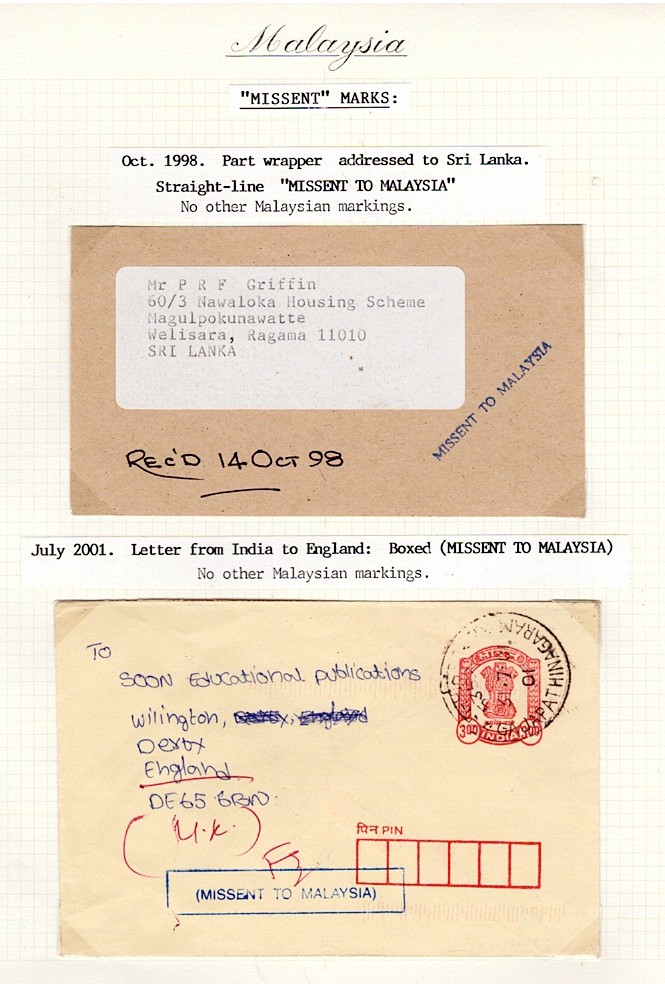 Malaysia
"MISSENT" MARKS:
Oct. 1998. Part wrapper addressed to Sri Lanka.
Straight-line "MISSENT TO MALAYSIA"
No other Malaysian markings.
Mr P R F Griffin
60/3 Nawaloka Housing Scheme
Magulpokunawatte
Welisara, Ragama 11010
SRI LANKA
MISSENT TO MALAYSIA
REC'D 14 OCT 98
July 2001. Letter from India to England: Boxed (MISSENT TO MALAYSIA)
No other Malaysian markings.
TO
SOON Educational publications
Wilington,
Derby
England
DE65 6BN.
(U.K.)
GAJAPATHINAGARAM
300 INDIA 300
पिन PIN
(MISSENT TO MALAYSIA)